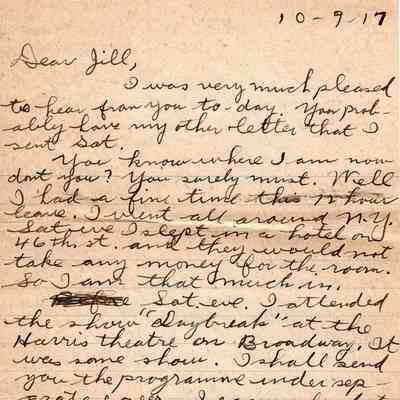 10-9-17
Dear Jill,
I was very much pleased
to hear from you to-day. You prob-
ably have my other letter that I
sent Sat.
You know where I am now
dont you? You surely must. Well
I had a fine time this 12 hour
leave. I went all around N.Y.
Sat eve I slept in a hotel on
46th st. and they would not
take any money for the room.
So I am that much in.
Sat. eve. I attended
the show "Daybreak" at the
Harris theatre on Broadway. It
was some show. I shall send
you the programme under sep-